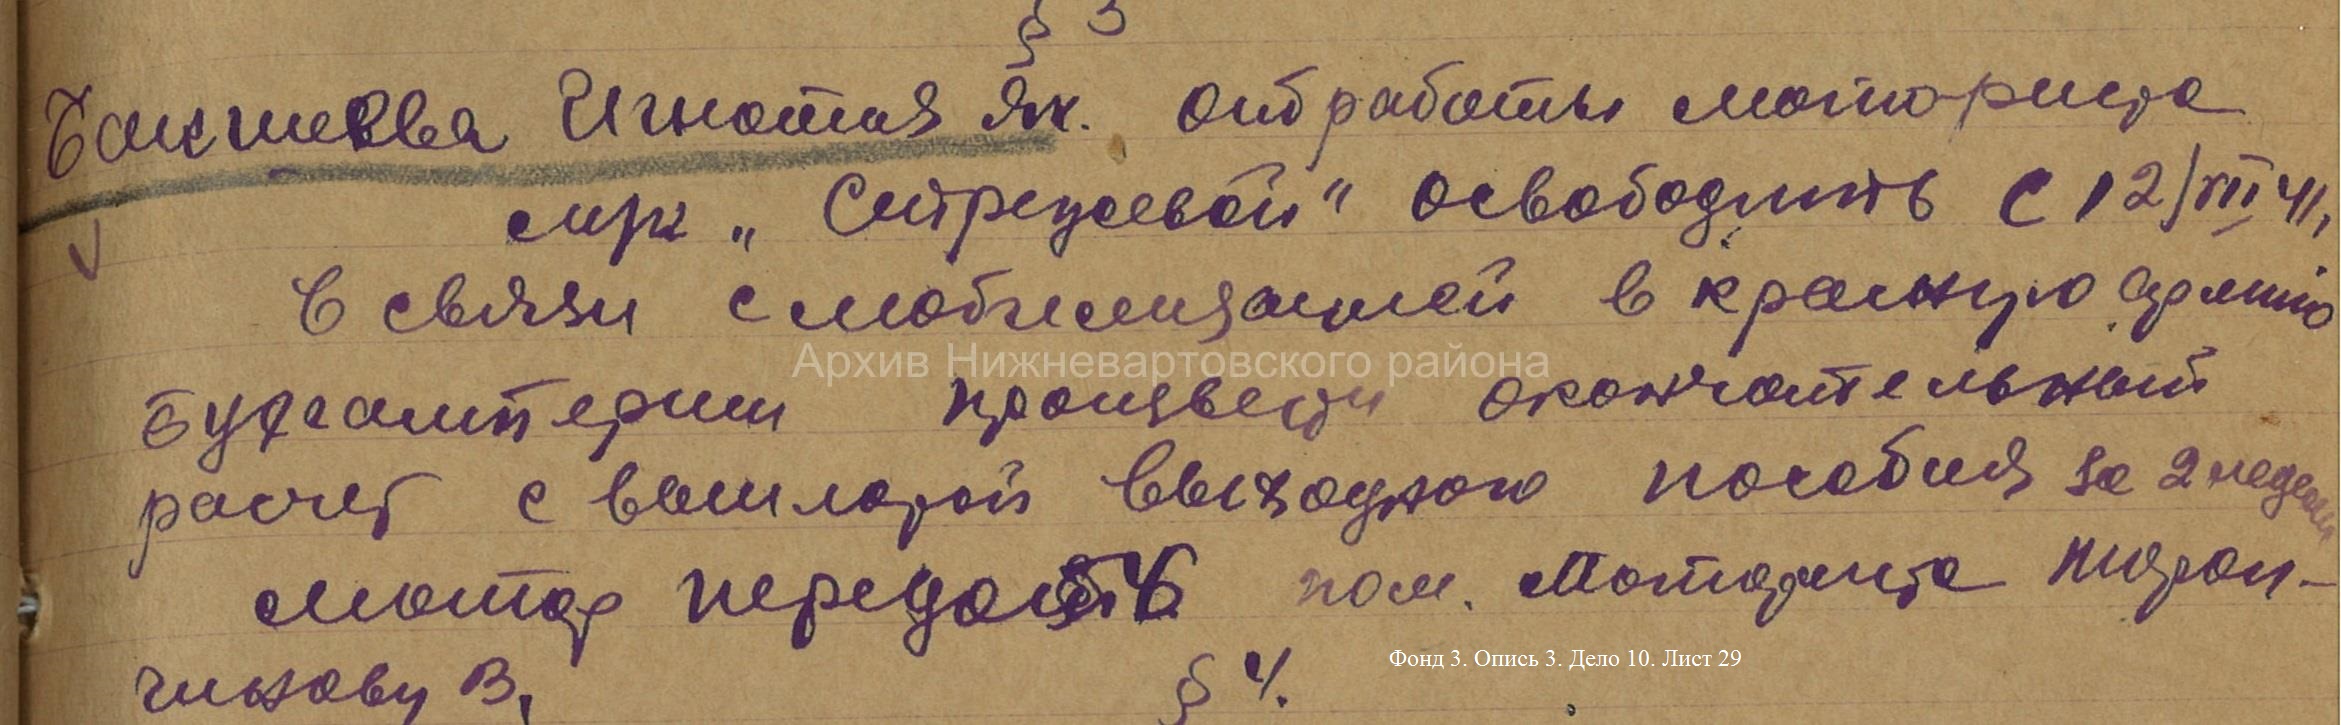 § 3
Бакшеева Игнатия Як. от работы мото-риста
мрк „Стрежевой" освободить с 12/VIII 41,
в связи с мобилизацией в красную армию
Архив Нижневартовского района
Бухгалтерии произвести окончательный
расчет с выплатой выходного пособия за 2 недели
мотор передать пом. моториста
чикову В,
§ 4.
Фонд 3. Опись 3. Дело 10. Лист 29